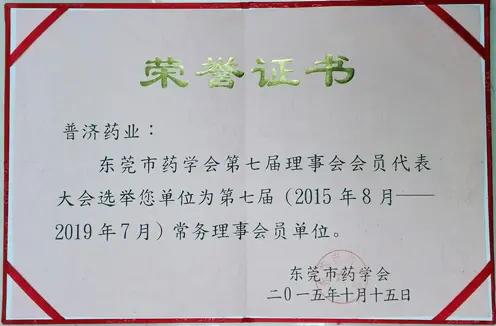 荣誉证书
普济药业：
东莞市药学会第七届理事会会员代表
大会选举您单位为第七届（2015年8月——
2019年7月）常务理事会员单位。
东莞市药学会
二〇一五年十月十五日